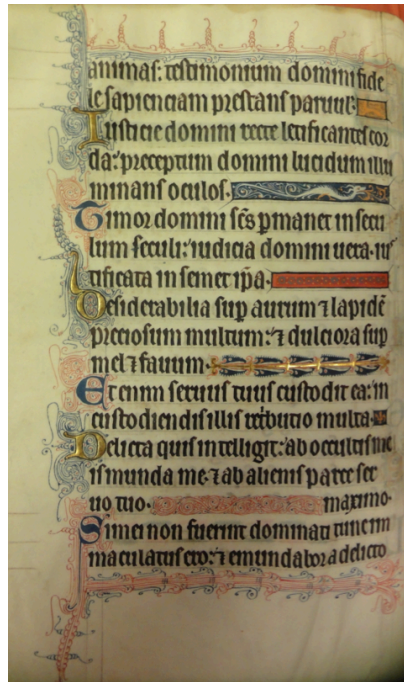 animas: testimonium domini fide
le sapienciam prestans paruul'.
Iusticie domini recte letificantes cor
da: preceptum domini lucidum illu
minans oculos.
Timor domini scs pmanet in secu
lum seculi: iudicia domini uera. ius
tificata in semet ipa.
Desiderabilia sup aurum ⁊ lapidē
preciosum multum: ⁊ dulciora sup
mel ⁊ fauum.
Etenim seruus tuus custodit ea: in
custodiendis illis retbutio multa.
Delicta quis intelligit: ab occultis me
is munda me. ⁊ ab alienis parce ser
uo tuo. maximo.
Si mei non fuerint dominati tunc im
maculatus ero: ⁊ emundabor a delicto